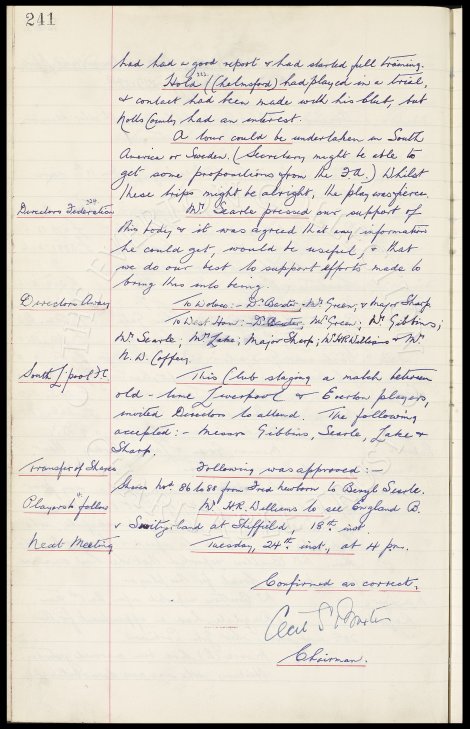 241
had had a good report & had started full training.
Hold (Chelmsford) had played in a trial,
& contact had been made with his club, but
Notts County had an interest.
A tour could be undertaken in South
America or Sweden. (Secretary might be able to
get some propositions from the F.A.) Whilst
these trips might be alright, the play was fierce.
Directors Federation
Mr. Searle pressed our support of
this body & it was agreed that any information
he could get, would be useful, & that
we do our best to support efforts made to
bring this into being.
Directors Away
To Wolves:- Dr. Baxter, Mr. Green, & Major Sharp
To West Ham:- Dr. Baxter, Mr. Green; Mr. Gibbins;
Mr. Searle; Mr. Lake; Major Sharp; Mr. H.R. Williams & Mr.
N. W. Coffey.
South L'pool FC
This Club staging a match between
old-time Liverpool & Everton players,
invited Directors to attend. The following
accepted:- Messrs Gibbins, Searle, Lake &
Sharp.
Transfer of Shares
Following was approved:-
Shares Nos. 86 to 88 from Fred to Beryl Searle.
Players to follow
Mr. H.R. Williams to see England B.
v Switzerland at Sheffield, 18th inst
Next Meeting
Tuesday, 24th inst, at 4 p.m.
Confirmed as correct:
Cecil S Baxter
Chairman.